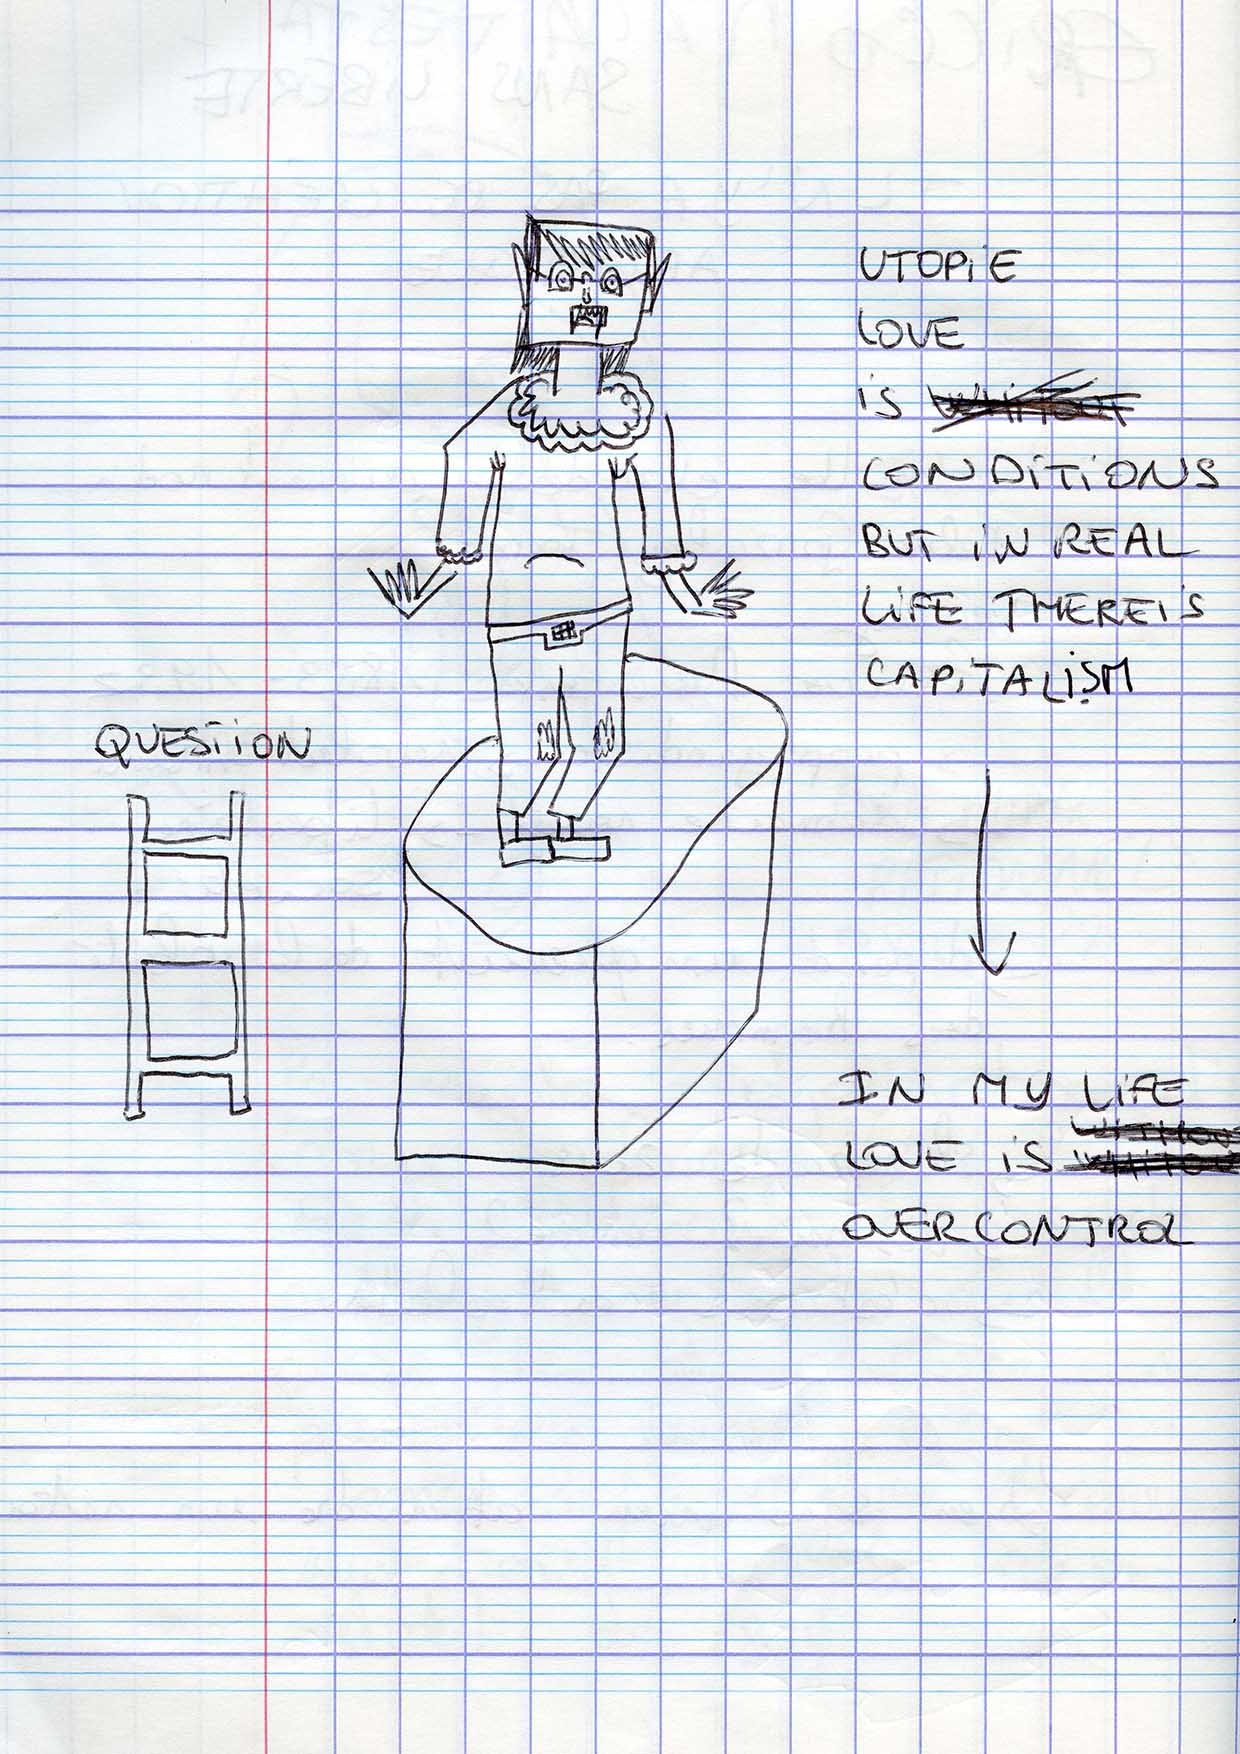 UTOPIE
LOVE
IS
CONDITIONS
BUT IN REAL
LIFE THEREIS
CAPITALISM
QUESTION
IN MY LIFE
LOVE IS
OVERCONTROL